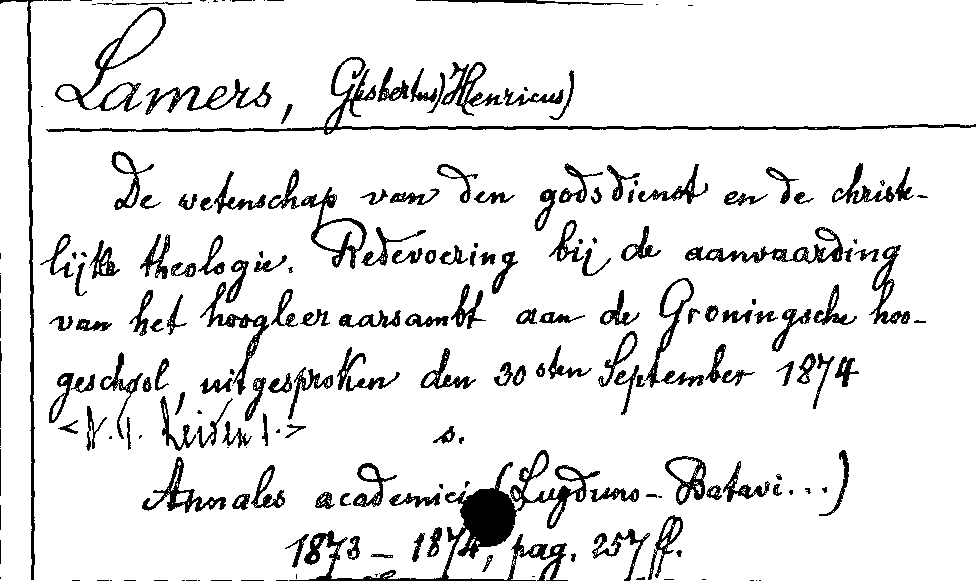 Lamers, G(isbertus) H(enricus)
De wetenschap van den godsdienst en de christe-
lijke theologie. Redevoering bij de aanvaarding
van het hoogleeraarsambt aan de Groningsche hoo-
geschool, uitgesproken den 30sten September 1874
s.
Annales academici (Lugduno-Batavi...)
1873 - 1874, pag. 257 ff.